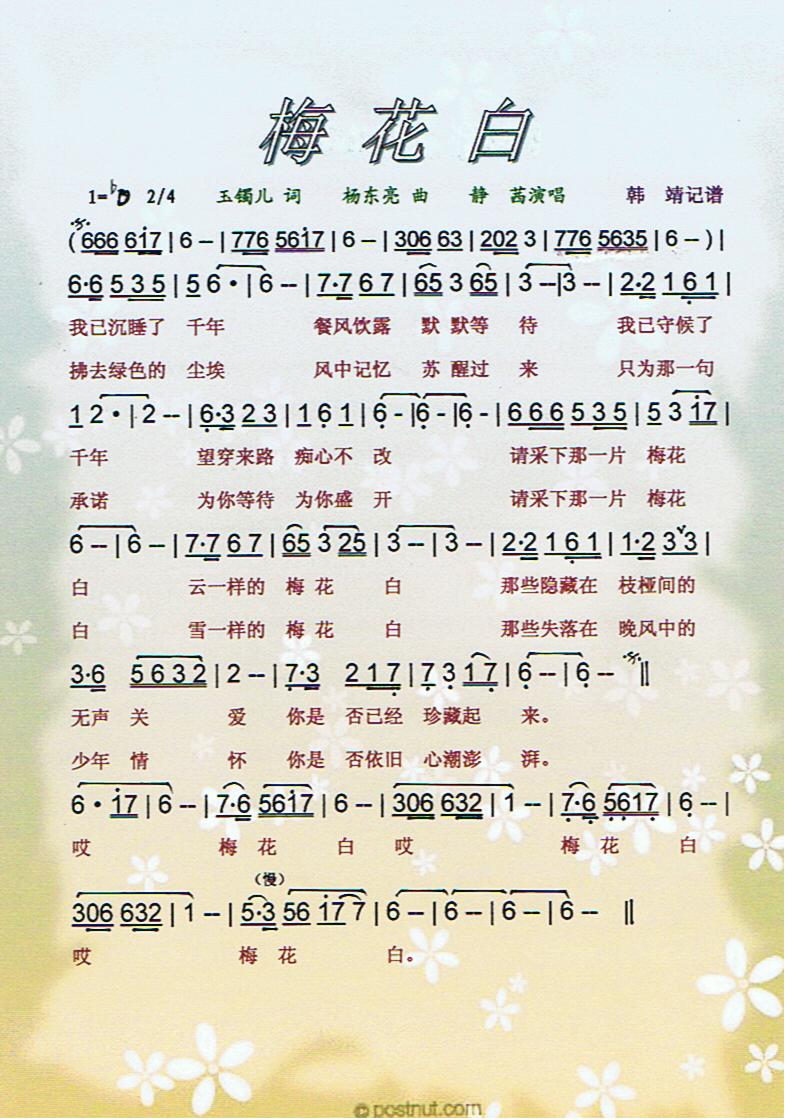 梅花白
1=♭D 2/4 玉镯儿 词 杨东亮 曲 静 茜演唱 韩 靖记谱
( 666 617 | 6 – | 776 5617 | 6 – | 306 63 | 202 3 | 776 5635 | 6 – ) |
6·6 5 3 5 | 5 6 · | 6 -- | 7·7 6 7 | 65 3 65 | 3 --|3 -- | 2·2 1 6 1 |
我已沉睡了 千年 餐风饮露 默 默等 待 我已守候了
拂去绿色的 尘埃 风中记忆 苏 醒过 来 只为那一句
1 2 · | 2 -- | 6·3 2 3 | 1 6 1 | 6 - |6 - |6 - | 6 6 6 5 3 5 | 5 3 17 |
千年 望穿来路 痴心不 改 请采下那一片 梅花
承诺 为你等待 为你盛 开 请采下那一片 梅花
6 -- | 6 -- | 7·7 6 7 | 65 3 25 | 3 -- | 3 -- | 2·2 1 6 1 | 1·2 3 3 |
白 云一样的 梅 花 白 那些隐藏在 枝桠间的
白 雪一样的 梅 花 白 那些失落在 晚风中的
3·6 5 6 3 2 | 2 -- | 7·3 2 1 7 | 7 3 1 7 | 6 -- | 6 -- ‖
无声 关 爱 你是 否已经 珍藏起 来。
少年 情 怀 你是 否依旧 心潮澎 湃。
6 · 17 | 6 -- | 7·6 5617 | 6 -- | 306 632 | 1 -- | 7·6 5617 | 6 -- |
哎 梅 花 白 哎 梅 花 白
（慢）
306 632 | 1 -- | 5·3 56 17 7 | 6 -- | 6 -- | 6 -- | 6 -- ‖
哎 梅 花 白。
© postnut.com